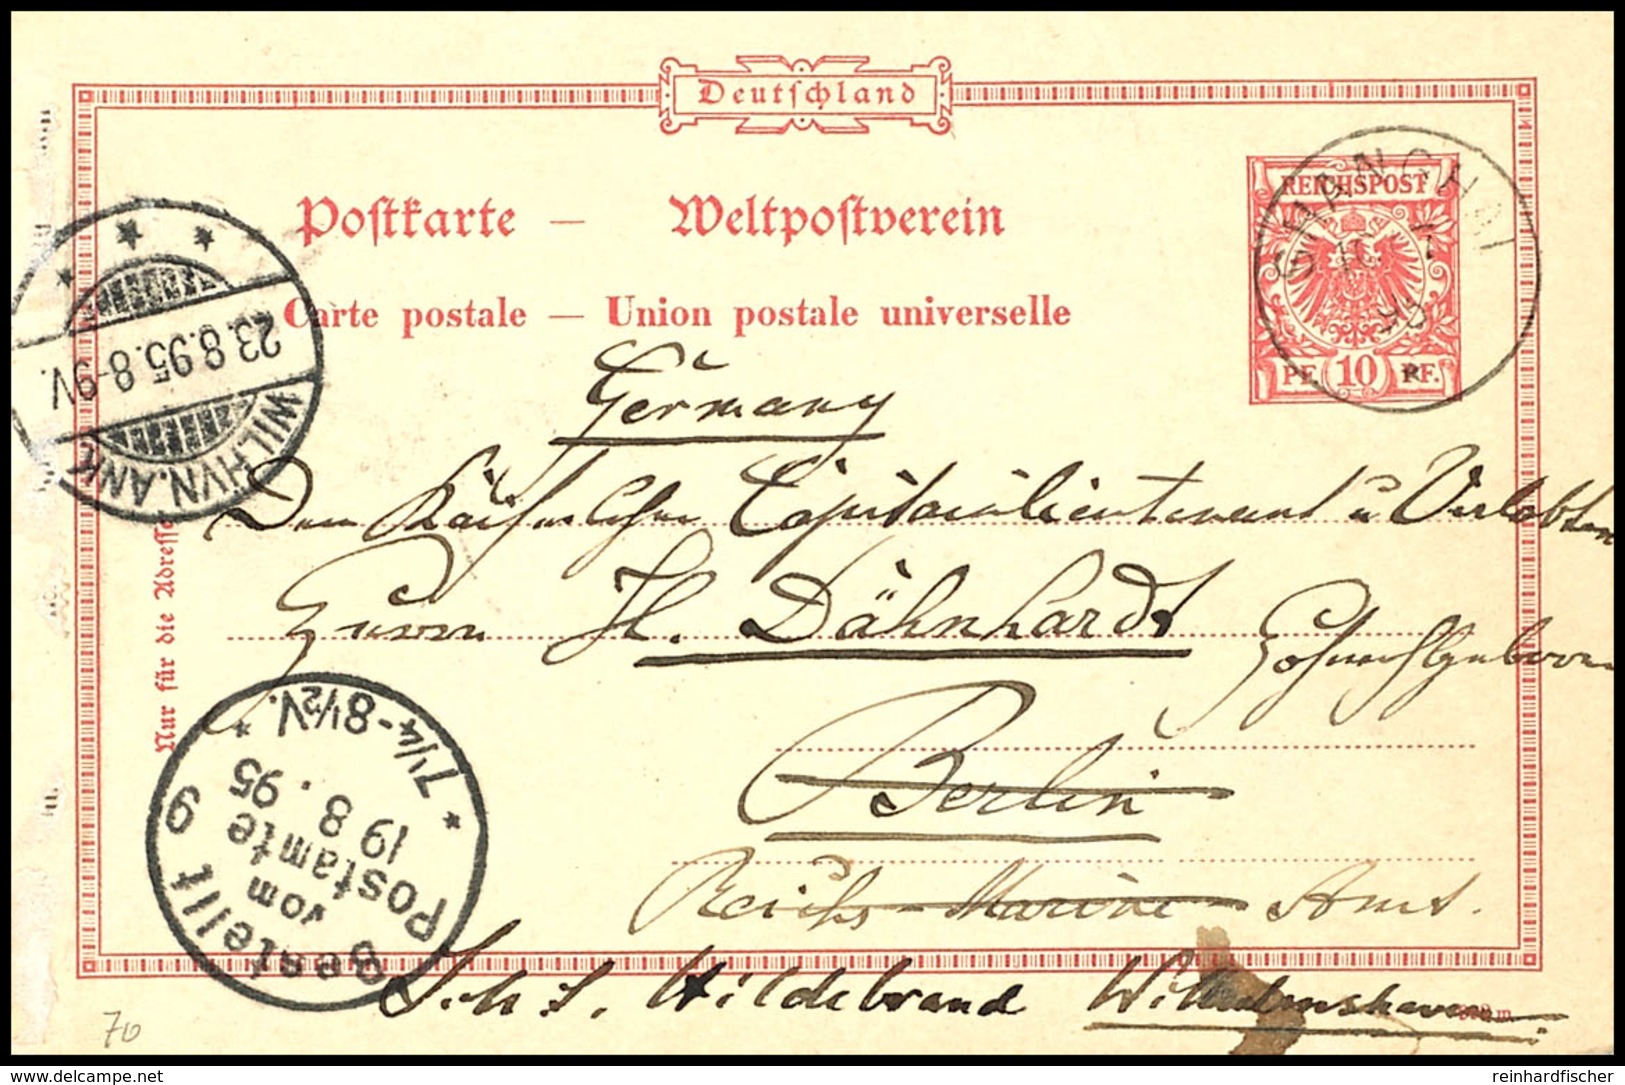 Deutschland
Postkarte — Weltpostverein
Carte postale — Union postale universelle
REICHSPOST
PF. 10 PF.
SHANGHAI
WILHVN.ANK
23.8.95.8-9V.
Germany
Dem Kaiserlichen Capitainlieutenant u Verlobten
Herrn H. Dähnhardt
Berlin
Reichs-Marine-Amt.
S.M.S. Hildebrand Wilhelmshaven
Nur für die Adresse
Bestellt
vom
Postamte 9
19 8. 95
7¼-8½V.
70
delcampe.net
reinhardfischer